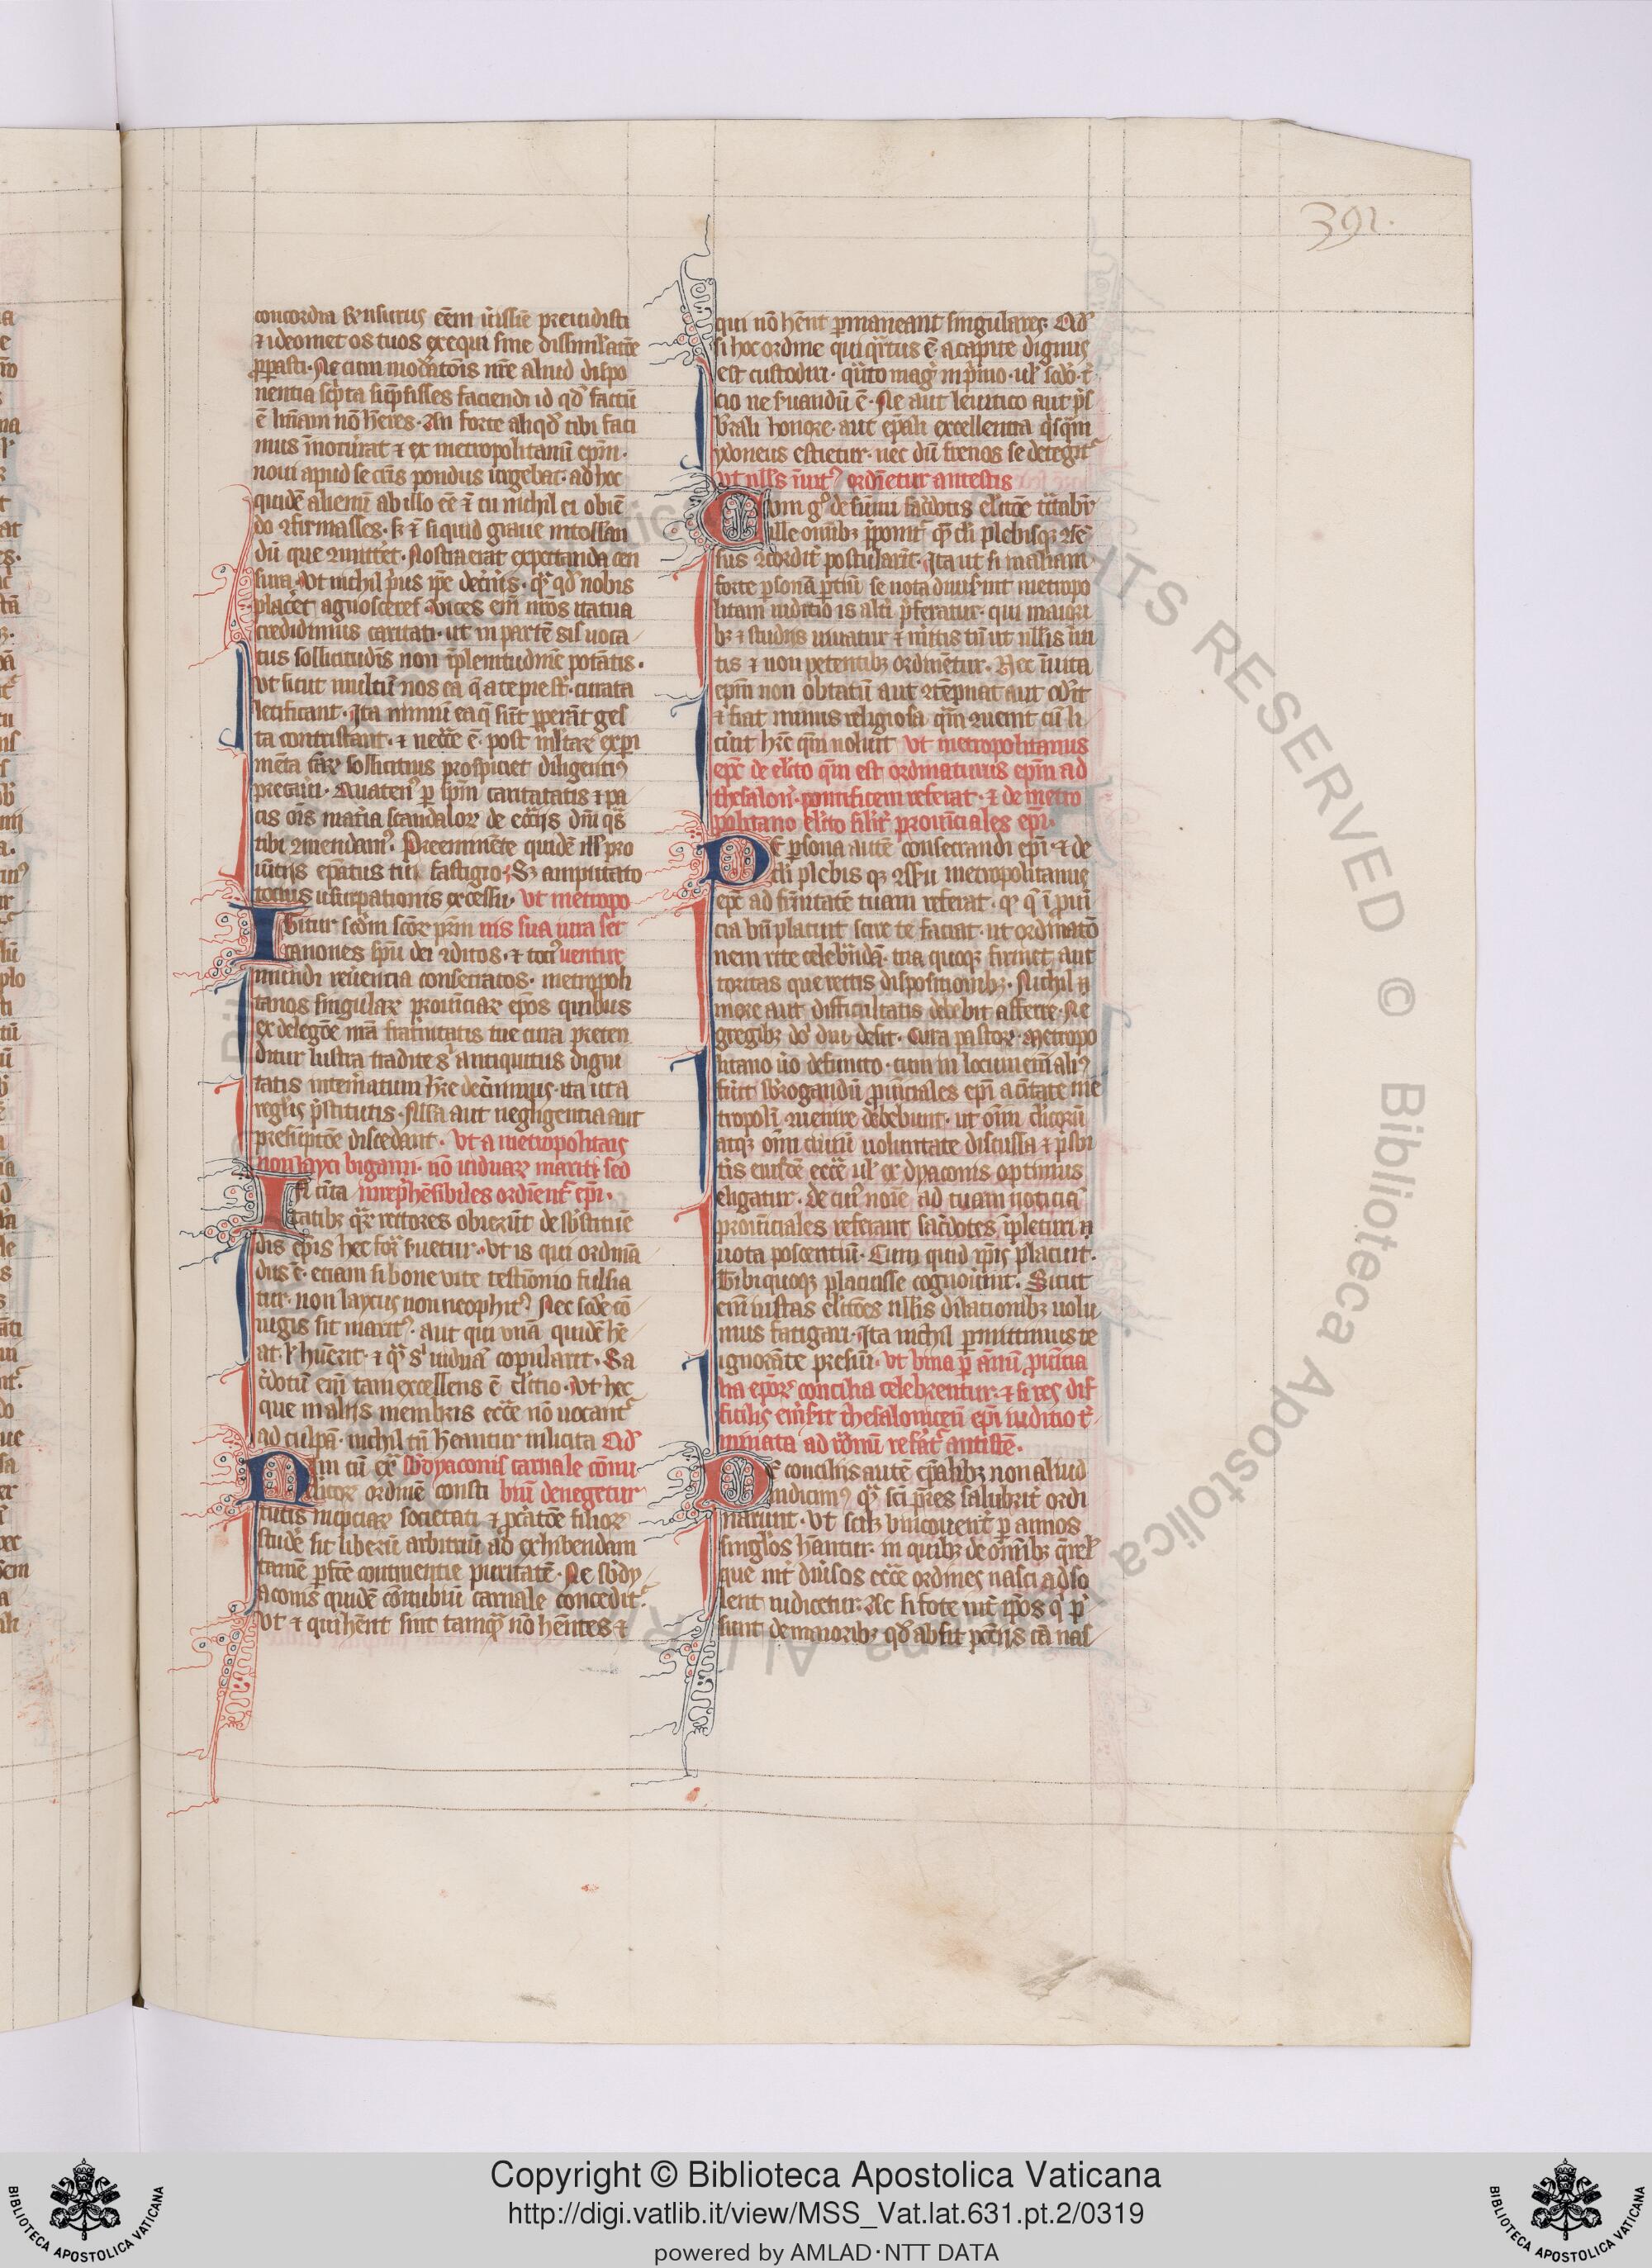 392.
concordia sensurus eēm iussisse preuidisti
⁊ ideo metos tuos exequi sine dissimilatōe
ꝓpasti. Ne cum moderatōis nr̄e aliud dispo
nentia scͥpta suscepisses faciendi id qd̄ factū
ē lnīam nō hēres. An forte aliqd̄ tibi faci
nus ī notuerat ⁊ ex metropolitanū epm̄
noui apud te cͥmīs pondus urgebat. ad hoc
quidē alienū ab illo eē ⁊ tu nichil ei obiē
do ꝯfirmasses. S; ⁊ si quid graue intolleran
dū que ꝯmitteret. Nostra erat expectanda cen
sura. Vt nichil pͥus ipē dec̄nēs. qͣ qd̄ nobis
placēt agnosceres. Vices em̄ nr̄as ita tua
credidimus caritati. ut in partē sis uoca
tus sollicitudīs non ī plenitudinē potātis.
Vt sicut multū nos ea q̄ a te pie sūt curata
letificant. Ita nimiū ea q̄ sūt ꝑperā gesͥ
ta contristant. ⁊ necc̄e ē. post multar̄ expi
mēta car̄ sollicitius prospicier diligentiꝰ
precaui. Quatenꝰ ꝑ spm̄ caritatatis ⁊ pa
cis oīs mat̄ia scandalor̄ de ecc̄ijs dn̄i qͣs
tibi ꝯmendamꝰ. Preeminēte quidē illis pro
uīcijs ep̄atus tui fastigio. S; amputato
totius usurpationis excessu. Vt metropo
Igitur scd̄m scōr̄ pr̄m nis sua iura ser
canones sp̄u dei ꝯditos. ⁊ totiꝰ uentur
mundi reuerencia consecratos. metropoli
tanos singular̄ prouīciar̄ ep̄os quibus
ex delegōe nr̄a fraternitatis tue cura preten
ditur iustra tradite sͥ antiquitus digni
tatis intem̄atum hr̄e dec̄nimus. ita ut a
regulis p̄stitutis. Nlla aut negligentia aut
presūptōe discedant. Vt a metropolitais
non layci bigami. nō uiduar̄ mariti. sed
In ciuita irrep̄hēsibiles ordīentͬ ep̄i.
tatib; qͣr̄ rectores obierūt de sb̄stituē
dis ep̄is hec for̄ suetur. Vt is qui ordinā
dus ē. etiam si bone uite testimonio fulcia
tur. non laycus non neophitꝰ. Nec scd̄e cō
iugis sit maritꝰ. aut qui vnā quidē hē
at. ł huerit. ⁊ qͣ sͥ uiduā copularit. Sa
c̄dotū em̄ tam excellens ē elc̄tio. Vt hec
que in alijs membris ecc̄e nō uocantͬ
ad culpā. nichil tn̄ heantur inlicita Qd̄
Nam cū ex̄ sb̄dyaconis carnale cōnu
lericor̄ ordinē consti biū denegetur
tutis nupciar̄ societati ⁊ pc̄atōē filior̄
studē sit liberū arbitriū ad exhibendam
tamē pfc̄te continentie puritatē. Ne sb̄dy
aconis quidē cōnubiū carnale conceditͬ
Vt ⁊ qui hēnt sint tamqͣ nō hēntes ⁊
qui nō hēnt ꝑmaneant singulares. Qd̄
si hoc ordine qui qͣrtus ē. a capite dignus
est custodiri. qͣto magꝭ in pͥmo. ul̄ scd̄o. t̄
cio ne suandū ē. Ne aut leuitico aut pͥs
b̄rali honore. aut ep̄ali excellentia qͥsqͣm
ydoneus estietur. nec dū frenos se detegitͬ
Vt nllꝰs inuitꝰ ordīetur antestis
Cum gͦ de sūmi sac̄dotis elc̄ōe tͣctabr̄
ille omīb; p̄ponitͬ qͣ cl̄i plebisq; ꝯsē
sus ꝯcordit̄ postularīt. Ita ut si in aliam
forte ꝑsonā ꝑtiū se uota diuisint metropo
litani iuditio is alti p̄feratur. qui maiori
b; ⁊ studiis iuuatur ⁊ mītis tn̄ ut nllus inui
tis ⁊ non petentib; ordinetur. Nec inuita
ep̄m non obtatū aut ꝯtēpnat aut od̄it
⁊ fiat minus religiosa. qͣm ꝯuenit cū li
cuit hr̄e qm̄ noluit Vt metropolitanus
ep̄c de elc̄to qm̄ est ordinaturus ep̄m ad
thesalon̄. pontificem referat. ⁊ de metro
politano elc̄to silit̄ prouinciales ep̄i.
De ꝑsona autē consecrandi ep̄i. ⁊ de
cl̄i plebis q; ꝯsēsu metropolitanus
ep̄c ad fr̄nitatē tuam referat. qͣ q̄ ī prouī
cia bn̄ placuit scire te faciat. ut ordinatō
nem rite celebr̄dā. tua quoq; firmet auc
toritas que rectis dispositionib;. Nichil n̄
more aut difficultatis debebit afferre. Ne
gregib; dō diu desit. cura pastor̄. Metropo
litano ūo defuncto. cum in locum em̄ aliꝰ
fūit sb̄rogandū ꝓuīciales ep̄i ad ciuitatē me
tropoli ꝯuenire debebunt. ut om̄ clic̄orū
atq; om̄ ciuiū uoluntate discussa ⁊ pͥsbi
tīs eiusdē ecc̄e ul̄ ex dyaconis optimus
eligatur. De cuiꝰ noīe ad tuam noticiā
prouīciales referant sac̄dotes īpleturi n̄
uota poscentiū. Cum quid ipīs placuit.
Tibi quoq; placuisse cognouint. Sicut
em̄ iustas elc̄tōes nllis dilationib; uolu
mus fatigari. Ita nichil ꝑmittimus te
ignorāte presumi. Vt bina ꝑ annū ꝓuīcia
lia ep̄or̄ concilia celebrentur. ⁊ si res dif
ficilis emsit thesalonicen̄ ep̄i iuditio t̄
minata ad romū refatͬ antistē.
De conciliis autē ep̄alib; non aliud
indicimꝰ qͣ sc̄i pr̄es salubrit̄ ordi
narunt. Vt scil; bini ꝯuentͬ ꝑ annos
singlōs hantur. in quib; de om̄ib; q̄rel̄
que int̄ diuisos ecc̄e ordines nasci ad so
lent iudicetur. Ac si fote int̄ ipos qͥ pͥ
sunt de maiorib; qd̄ absit pcc̄tis cā nas
Copyright © Biblioteca Apostolica Vaticana
http://digi.vatlib.it/view/MSS_Vat.lat.631.pt.2/0319
powered by AMLAD·NTT DATA
BIBLIOTECA APOSTOLICA VATICANA
BIBLIOTECA APOSTOLICA VATICANA